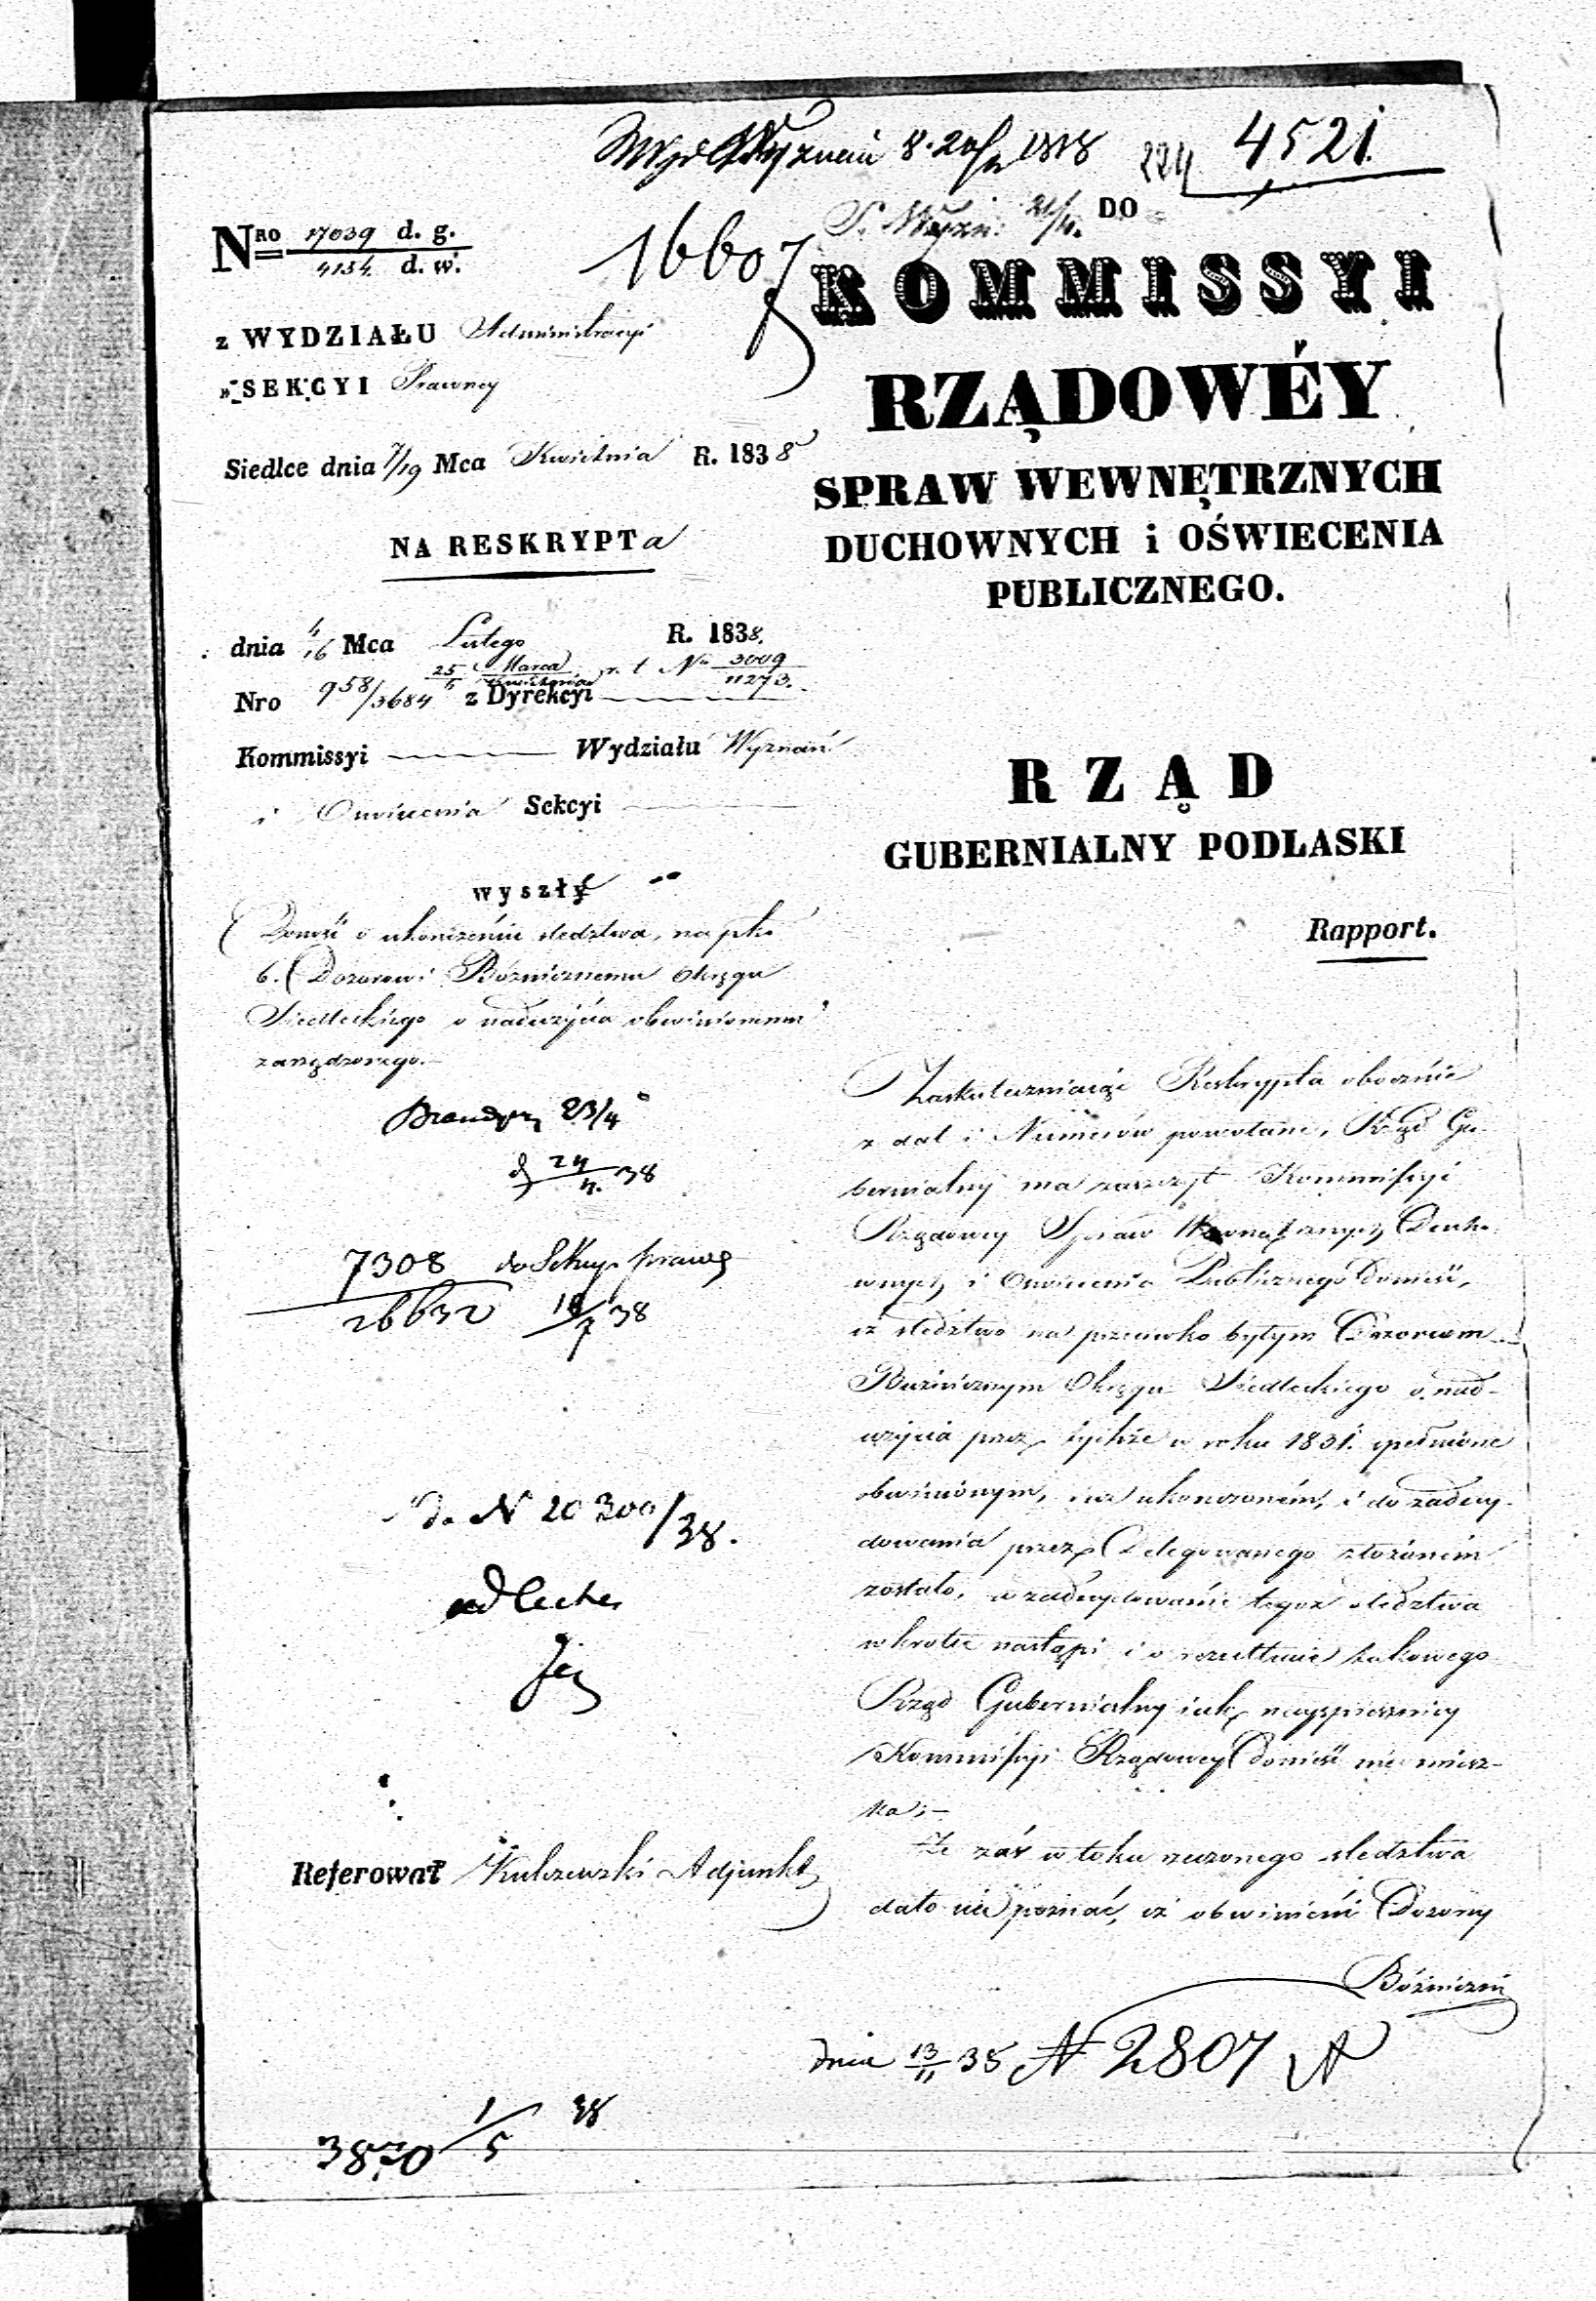 8. 20/4 1838
224 4521.
16607
P. Wyzn: 21/4. DO
KOMMISSYI
RZĄDOWÉY
SPRAW WEWNĘTRZNYCH
DUCHOWNYCH i OŚWIECENIA
PUBLICZNEGO.
RZĄD
GUBERNIALNY PODLASKI
Rapport.
NRO 17039 d. g.
4154. d. w.
z WYDZIAŁU Administracyi
„ SEKCYI Prawney
Siedlce dnia 7/19 Mca Kwietnia R. 1838
NA RESKRYPTa
dnia 4/16 Mca Lutego R. 1838.
25/5 Marca/Kwietnia r. t. No 3009/11273.
Nro 958/3684 z Dyrekcyi
Kommissyi Wydziału Wyznań
i Oswiecenia Sekcyi
wyszłe
Donosi o ukończeniu sledztwa, na pko
b. Dozorowi Bóżnicznemu Okręgu
Siedleckiego o nadużycia obwinionemu
zarządzonego.
23/4
24/4. 38
7308 do Sekcyi prawney
26632 18/7 38
do N 20300/38.
ad acta
Referował Kulczewski Adjunkt
3870 1/5 38
Zaskuteczniaiąc Reskrypta obocznie
z dat i Numerów powołane, Rząd Gu-
bernialny ma zaszczyt Kommissyi
Rządowey Spraw Wewnętrznych Ducho-
wnych i Oswiecenia Publicznego donieść,
iż sledztwo na przeciwko byłym Dozorcom
Bużnicznym Okręgu Siedleckiego o nad-
użycia przez tychże w roku 1831. spełnione
obwinionym, iuż ukonczoném, i do zadecy-
dowania przez Delegowanego złożoném
zostało, a zadecydowanie tegoż sledztwa
wkrotce nastąpi i o rezultacie takowego
Rząd Gubernialny iak nayspieszniey
Kommissyi Rządowey donieść nie miesz-
ka;—
Że zaś w toku rzeczonego sledztwa
dało się poznać, iż obwinieni Dozorcy
Bóżniczni
dnia 13/11 35 N 2807